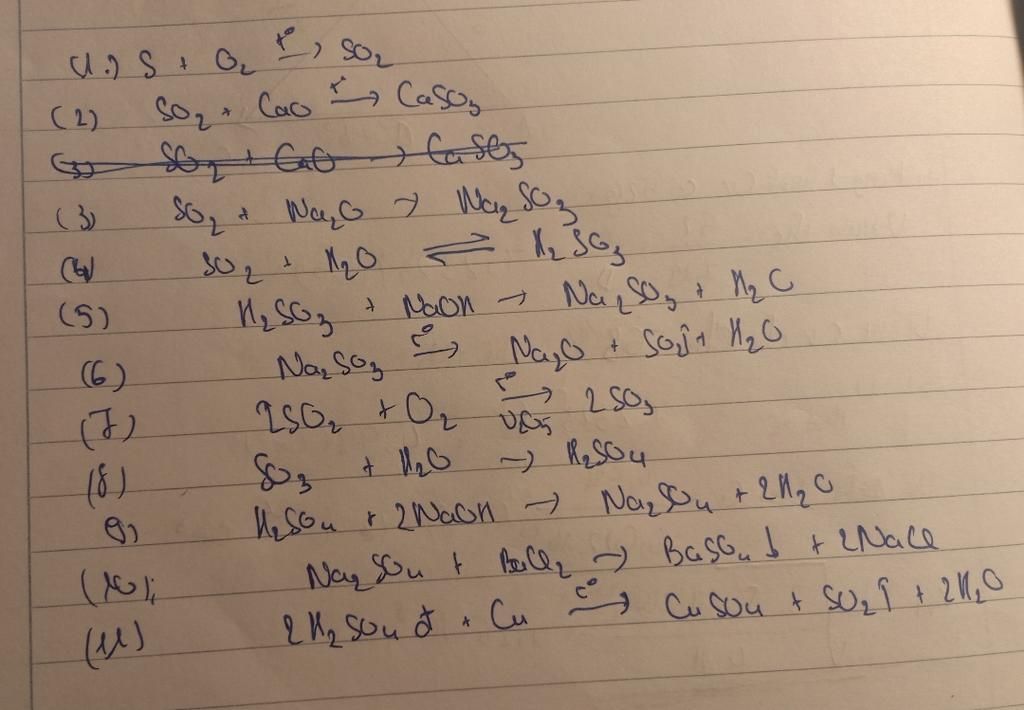 (1.) S + O2 t°→ SO2
(2) SO2 + CaO t°→ CaSO3
(3) SO2 + CaO → CaSO3
(3) SO2 + Na2O → Na2SO3
(4) SO2 + H2O ⇌ H2SO3
(5) H2SO3 + NaOH → Na2SO3 + H2O
(6) Na2SO3 t°→ Na2O + SO2↑ + H2O
(7) 2SO2 + O2 t°→ V2O5 2SO3
(8) SO3 + H2O → H2SO4
9) H2SO4 + 2NaOH → Na2SO4 + 2H2O
(10); Na2SO4 + BaCl2 → BaSO4↓ + 2NaCl
(11) 2H2SO4 đ + Cu t°→ CuSO4 + SO2↑ + 2H2O